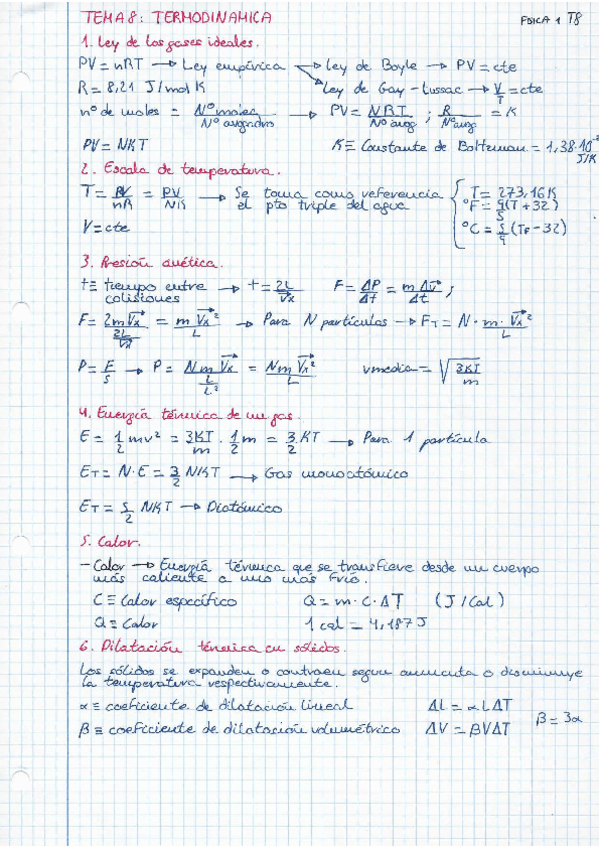 TEMA 8: TERMODINAMICA FÍSICA 1 T8
1. Ley de los gases ideales.
PV = nRT → Ley empírica → Ley de Boyle → PV = cte
R = 8,21 J/mol K → Ley de Gay-Lussac → V/T = cte
nº de moles = Nº molec/Nº avogadro → PV = NRT/Nº avog ; R/Nº avog = K
PV = NKT K ≡ Constante de Boltzman = 1,38·10⁻² J/K
2. Escala de temperatura.
T = PV/nR = PV/NK → Se toma como referencia el pto triple del agua { T = 273,16 K
ºF = 9/5 (T + 32)
V = cte ºC = 5/9 (TF - 32)
3. Presión cinética.
t ≡ tiempo entre colisiones → t = 2L/Vx F = ΔP/Δt = m Δv/Δt ;
F = 2mVx/(2L/Vx) = m Vx²/L → Para N partículas → FT = N · m · Vx²/L
P = F/S → P = N m Vx/(L/L²) = N m Vx²/L vmedia = √(3KT/m)
4. Energía térmica de un gas.
E = 1/2 mv² = 3KT/m · 1/2 m = 3/2 KT → Para 1 partícula
ET = N·E = 3/2 NKT → Gas monoatómico
ET = 5/2 NKT → Diatómico
5. Calor.
- Calor → Energía térmica que se transfiere desde un cuerpo
más caliente a uno más frío.
C ≡ Calor específico Q = m·C·ΔT (J/Cal)
Q ≡ Calor 1 cal = 4,187 J
6. Dilatación térmica en sólidos.
Los sólidos se expanden o contraen segun aumenta o disminuye
la temperatura respectivamente.
α ≡ coeficiente de dilatación lineal ΔL = αLΔT
β ≡ coeficiente de dilatación volumétrico ΔV = βVΔT β = 3α